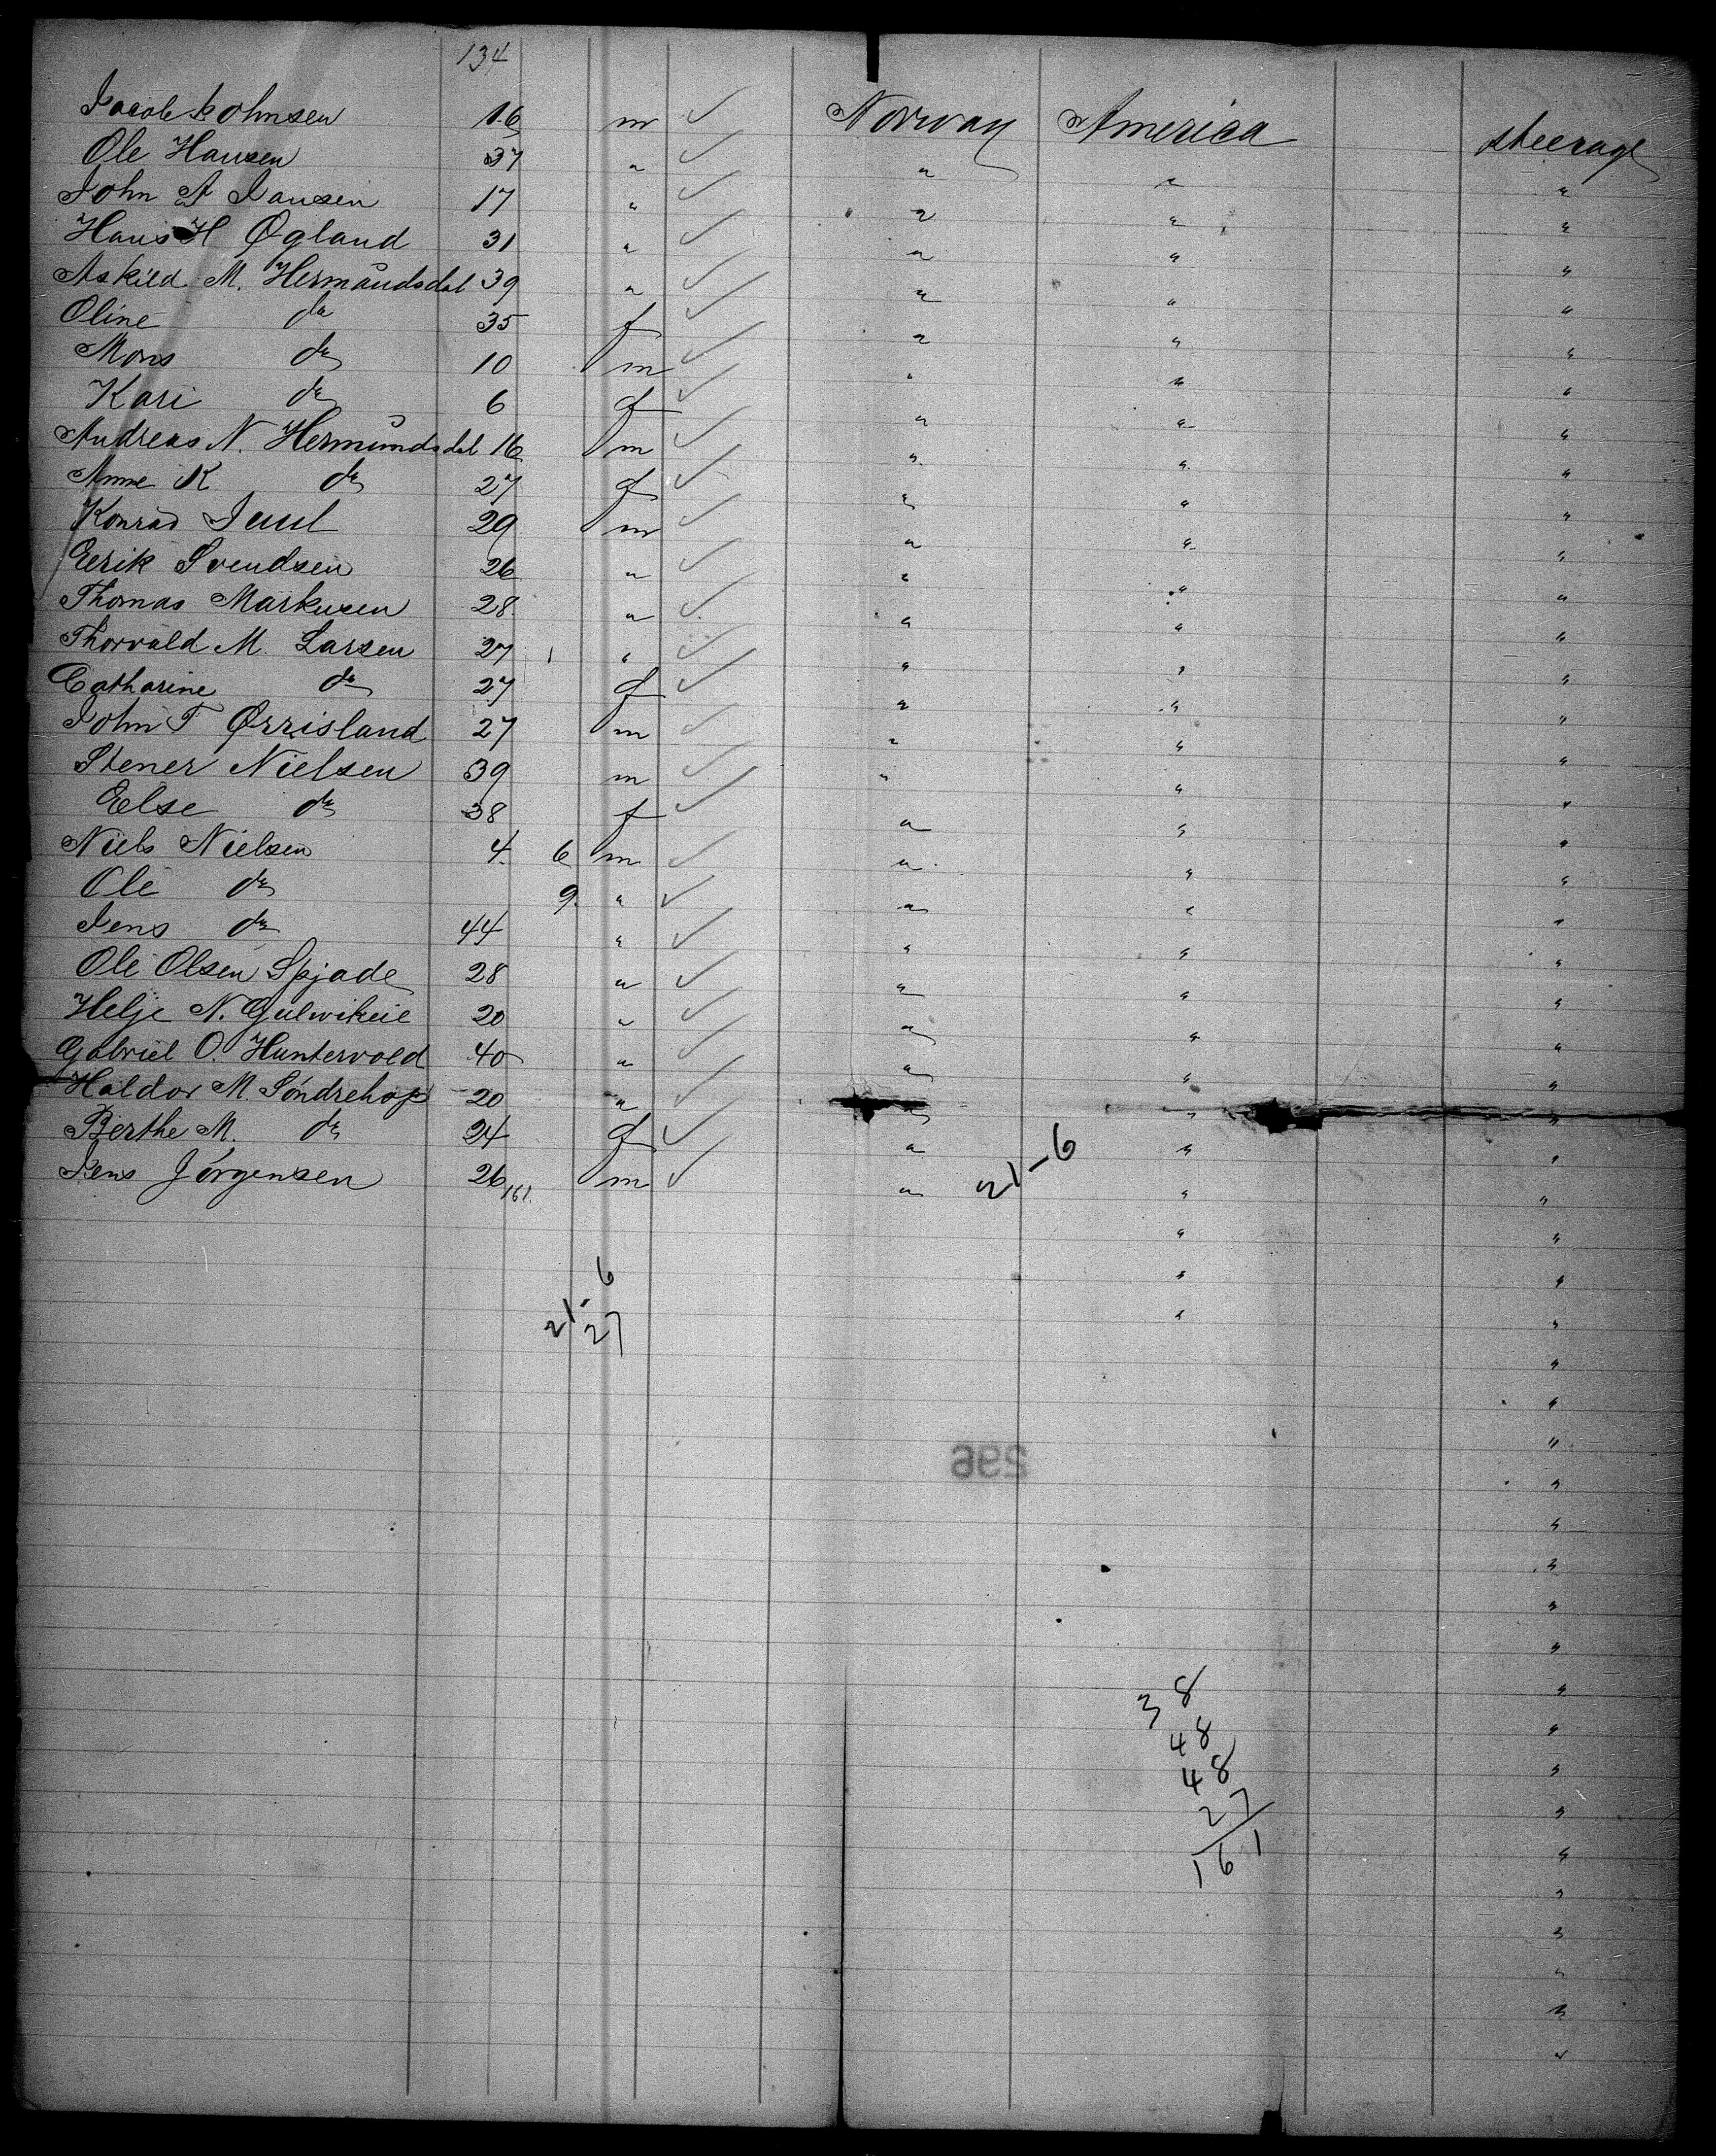 134
Jacob Johnsen 16 m ✓ Norway America steerage
Ole Hansen 37 " ✓ " " "
John A Jansen 17 " ✓ " " "
Hans H Øgland 31 " ✓ " " "
Askild M. Hermundsdal 39 " ✓ " " "
Oline do 35 f ✓ " " "
Mons do 10 m ✓ " " "
Kari do 6 f ✓ " " "
Andreas N. Hermundsdal 16 m ✓ " " "
Anne K do 27 f ✓ " " "
Konrad Juul 29 m ✓ " " "
Eerik Svendsen 26 " ✓ " " "
Thomas Markusen 28 " ✓ " " "
Thorvald M. Larsen 27 " ✓ " " "
Catharine do 27 f ✓ " " "
John T Ørrisland 27 m ✓ " " "
Stener Nielsen 39 m ✓ " " "
Else do 38 f ✓ " " "
Niels Nielsen 4. 6 m ✓ " " "
Ole do 9. " ✓ " " "
Jens do 44 " ✓ " " "
Ole Olsen Spjade 28 " ✓ " " "
Helje N. 20 " ✓ " " "
Gabriel O. Huntervold 40 " ✓ " " "
Haldor M. Söndrehop 20 " ✓ " " "
Berthe M. do 24 f ✓ " " "
Jens Jörgensen 26 161. m ✓ " 21-6 " "
" "
" "
21-6 " "
27 "
"
"
"
296
"
"
"
"
"
38 "
48 "
48 "
27 "
161 "
"
"
"
"
"